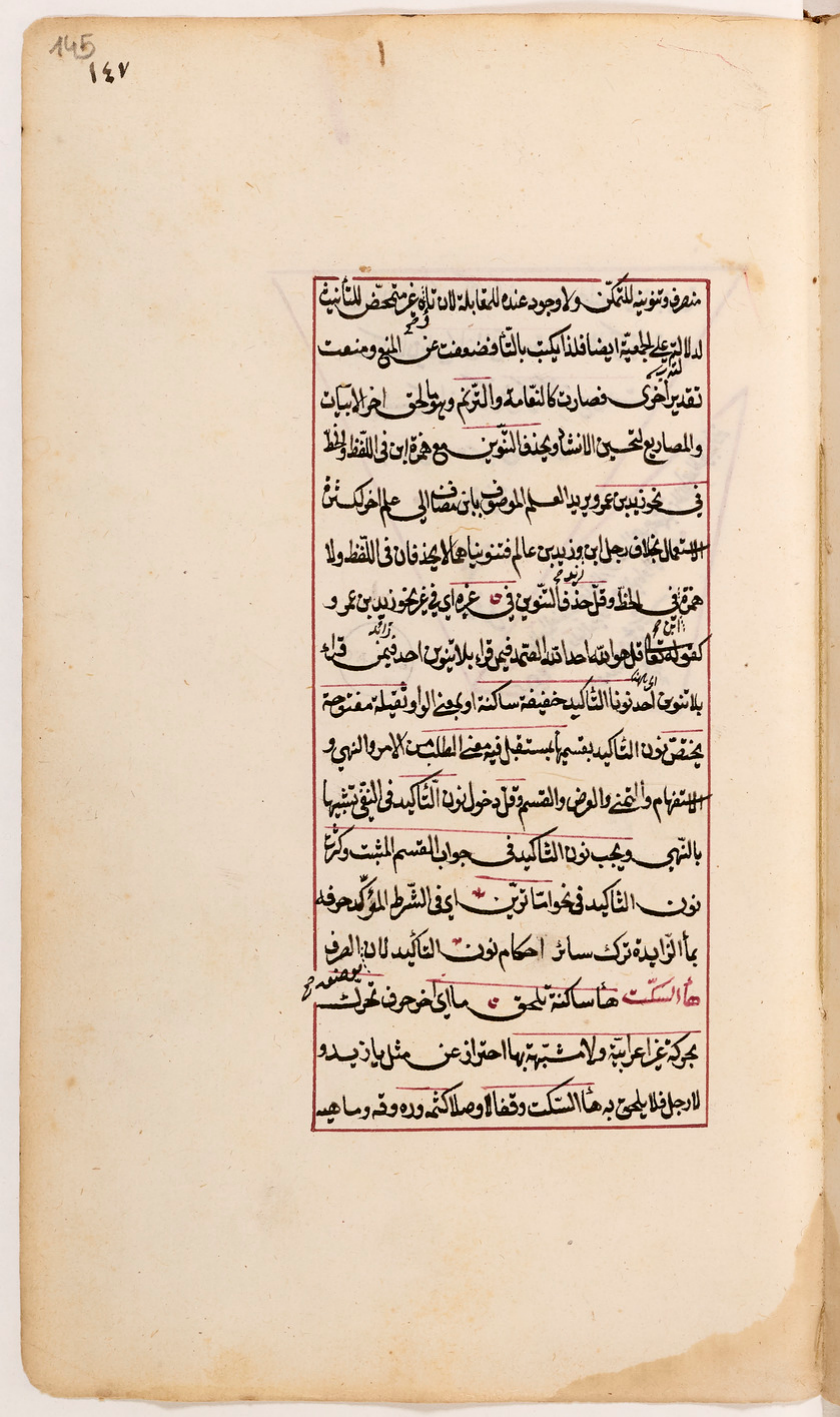 145
١٤٧
منصرف وتنوينه للتمكّن ولا وجود عنده للمقابلة لان تاءه غير متمحّض للتأنيث
لدلالته على الجمعيّة ايضا فلذا يكتب بالتّا فضعفت عن المنع ومنعت
تقدير أخرى فصارت كالنعّامة والترنّم وهو ما لحق اخر الابيات
والمصاريع لتحسين الانشاد ويحذف التّنوين مع همزة ابن فى اللّفظ والخطّ
في نحو زيد بن عمرو يريد العلم الموصوف بابن مضاف الى علم اخر لكثرة
الاستعمال بخلاف رجل ابن وزيد بن عالم فتنويناهما لا يحذفان فى اللّفظ ولا
همزة فى الخطّ وقلّ حذف التّنوين في غيره اى في غير نحو زيد بن عمرو و
كقوله تعا قل هو الله احد الله الصّمد فيمن قراء بلا تنوين احد فيمن قراء
بلا تنوين أحد نونا التّأكيد خفيفة ساكنة او بمعنى الواو ثقيلة مفتوحة
يختصّ نون التّأكيد بقسميها بمستقبل فيه معنى الطلب من الامر والنهي و
الاستفهام والتمنى والعرض والقسم وقلّ دخول نون التّأكيد فى النّفى تشبيها
بالنّهى ويجب نون التّأكيد فى جواب القسم المثبت وكثرت
نون التّأكيد فى نحو امّا ترينّ اى فى الشّرط المؤكّد حرفه
بما الزّايدة ترك سائر احكام نون التاكيد لان الصرف
يوضحه
هأ السّكت هأ ساكنة تلحق ما اى آخر حرف تحرّك
بحركة غير اعرابيّة ولا مشبّهة بها احتراز عن مثل يا زيد و
لا رجل فلا يلحق به هأ السّكت وقفا لا وصلا كثمه وره وقه وما هيه